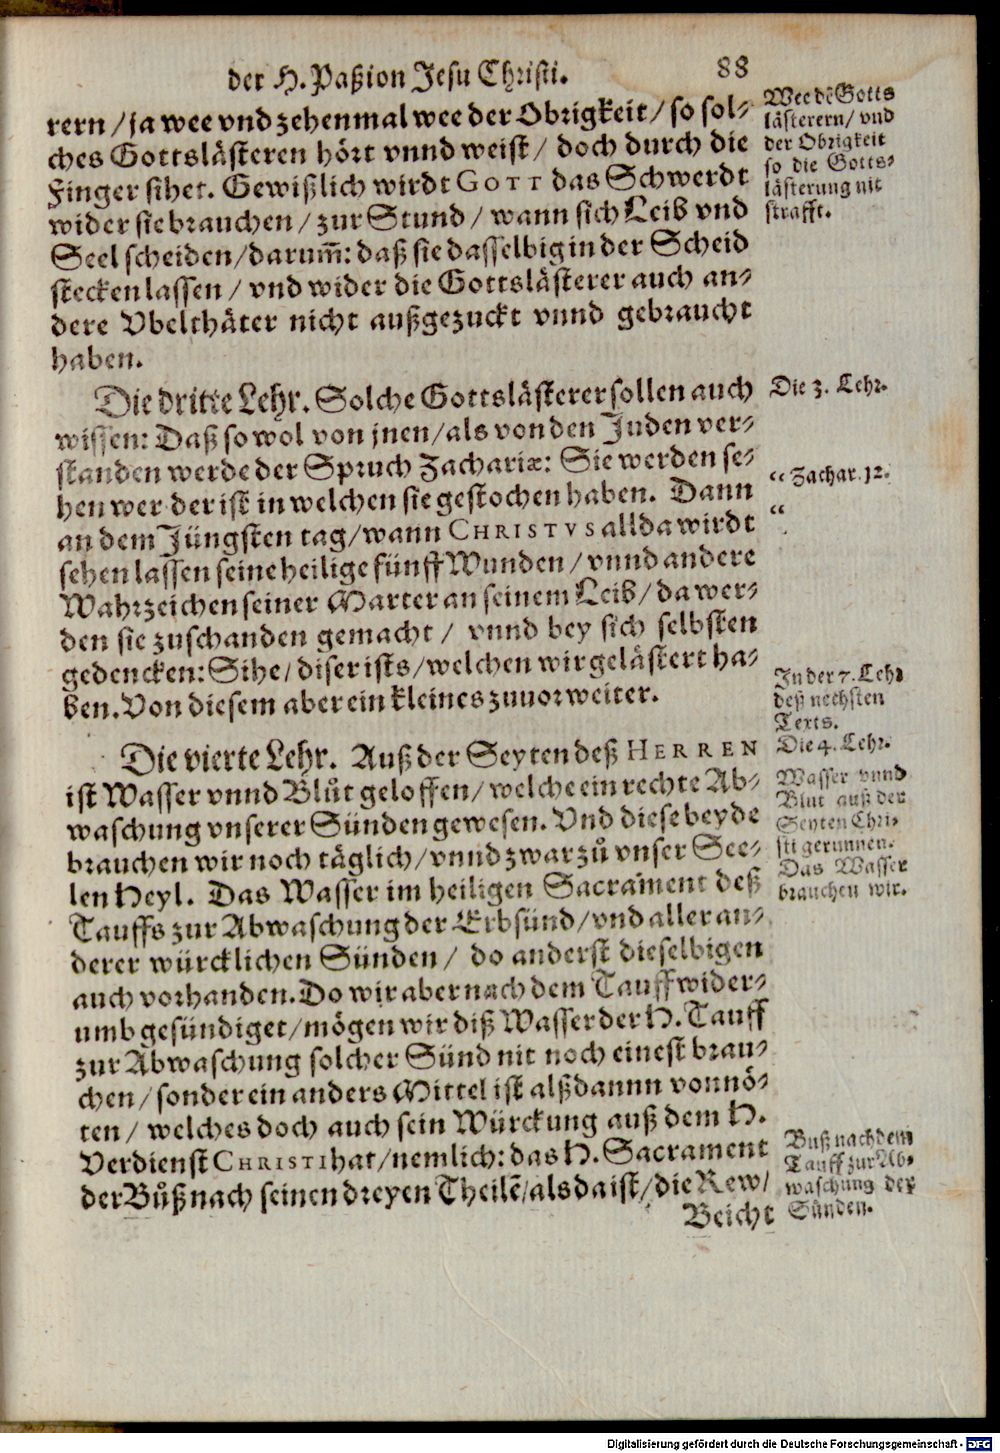 der H. Paßion Jesu Christi. 88
rern / ja wee vnd zehenmal wee der Obrigkeit / so sol-
ches Gottslästeren hört vnnd weist / doch durch die
Finger sihet. Gewißlich wirdt GOTT das Schwerdt
wider sie brauchen / zur Stund / wann sich Leib vnd
Seel scheiden / darum̃: daß sie dasselbig in der Scheid
stecken lassen / vnd wider die Gottslästerer auch an-
dere Vbelthäter nicht außgezuckt vnnd gebraucht
haben.
Wee dē Gotts
lästerern / vnd
der Obrigkeit
so die Gotts-
lästerung nit
strafft.
Die dritte Lehr. Solche Gottslästerer sollen auch
wissen: Daß so wol von jnen / als von den Juden ver-
standen werde der Spruch Zachariæ: Sie werden se-
hen wer der ist in welchen sie gestochen haben. Dann
an dem Jüngsten tag / wann CHRISTVS allda wirdt
sehen lassen seine heilige fünff Wunden / vnnd andere
Wahrzeichen seiner Marter an seinem Leib / da wer-
den sie zuschanden gemacht / vnnd bey sich selbsten
gedencken: Sihe / diser ists / welchen wir gelästert ha-
ben. Von diesem aber ein kleines zuuor weiter.
Die 3. Lehr.
“ Zachar. 12.
“
In der 7. Lehr
deß nechsten
Texts.
Die vierte Lehr. Auß der Seyten deß HERREN
ist Wasser vnnd Blůt geloffen / welche ein rechte Ab-
waschung vnserer Sünden gewesen. Vnd diese beyde
brauchen wir noch täglich / vnnd zwar zů vnser See-
len Heyl. Das Wasser im heiligen Sacrament deß
Tauffs zur Abwaschung der Erbsünd / vnd aller an-
derer würcklichen Sünden / do anderst dieselbigen
auch vorhanden. Do wir aber nach dem Tauff wider-
umb gesündiget / mögen wir diß Wasser der H. Tauff
zur Abwaschung solcher Sünd nit noch einest brau-
chen / sonder ein anders Mittel ist alßdann vonnö-
ten / welches doch auch sein Würckung auß dem H.
Verdienst CHRISTI hat / nemlich: das H. Sacrament
der Bůß nach seinen dreyen Theilē / als da ist / die Rew /
Beicht
Die 4. Lehr.
Wasser vnnd
Blut auß der
Seyten Chri-
sti gerunnen.
Das Wasser
brauchen wir.
Buß nach dem
Tauff zur Ab-
waschung der
Sünden.
Digitalisierung gefördert durch die Deutsche Forschungsgemeinschaft - DFG